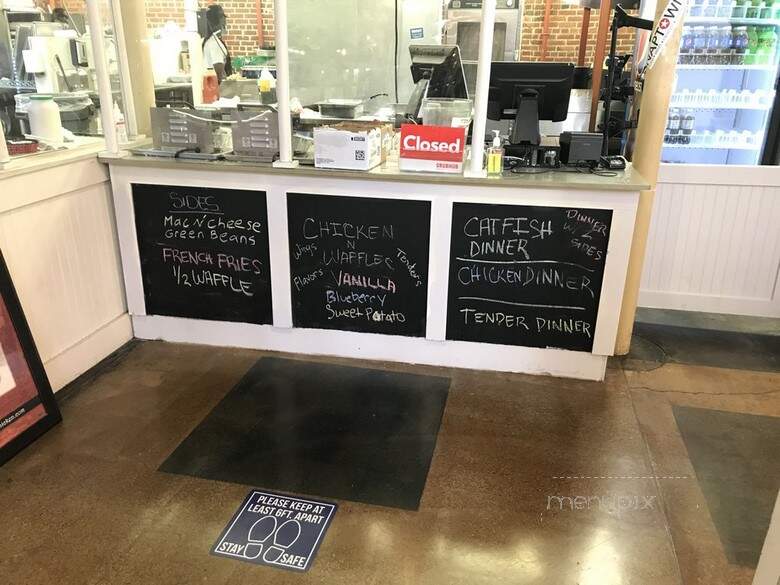 APTOW
Closed
GRUBHUB
SIDES
Mac N Cheese
Green Beans
FRENCH FRIES
1/2 WAFFLE
CHICKEN
N
WAFFLES
Wings
Tenders
Flavors
VANILLA
Blueberry
Sweet Potato
CATFISH
DINNER
DINNER
W/ 2
SIDES
CHICKEN DINNER
TENDER DINNER
PLEASE KEEP AT
LEAST 6FT. APART
STAY
SAFE
menupix